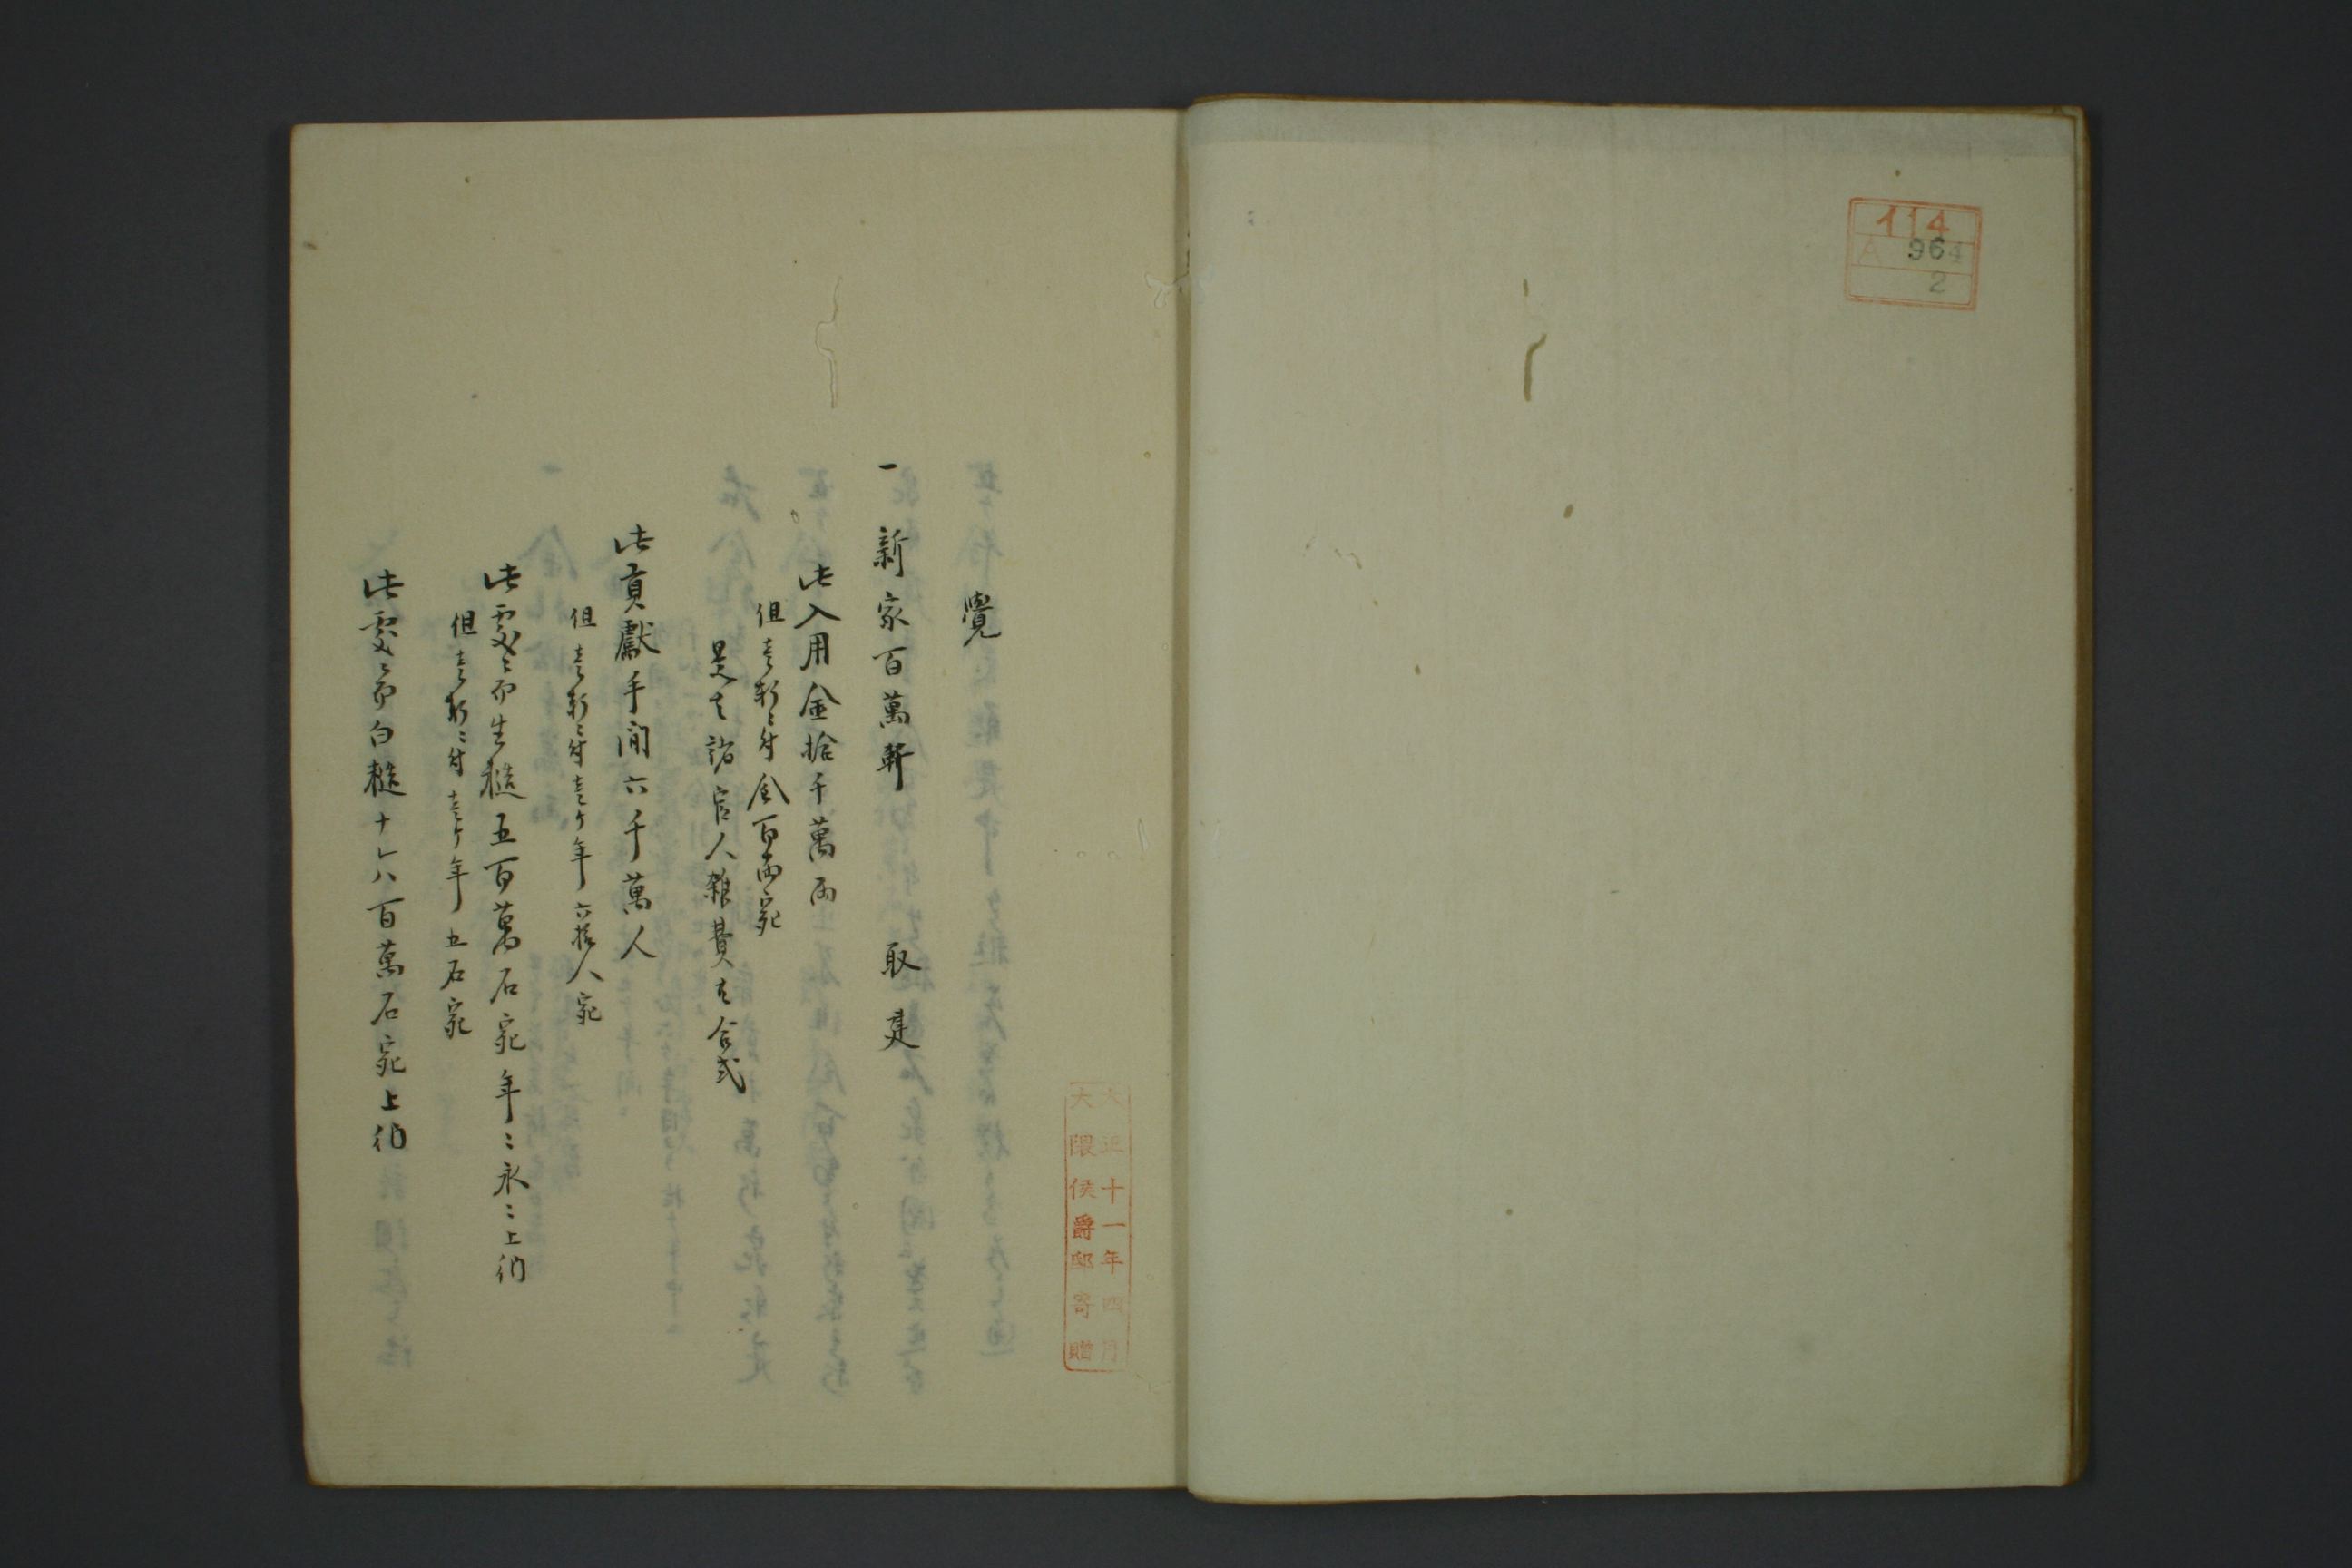 114
A 964
2
大正十一年四月
大隈侯爵邸寄贈
覺
一 新家百萬軒 取建
此入用金拾千萬両
但壱軒ニ付金百両宛
是ハ諸官人雜費ハ合式
此貢獻手間六千萬人
但壱軒ニ付壱ケ年六拾人宛
此処ニ而生糙五百萬石宛年ニ永ニ上納
但壱軒ニ付壱ケ年五石宛
此処ニ而白糙十六百萬石宛上納